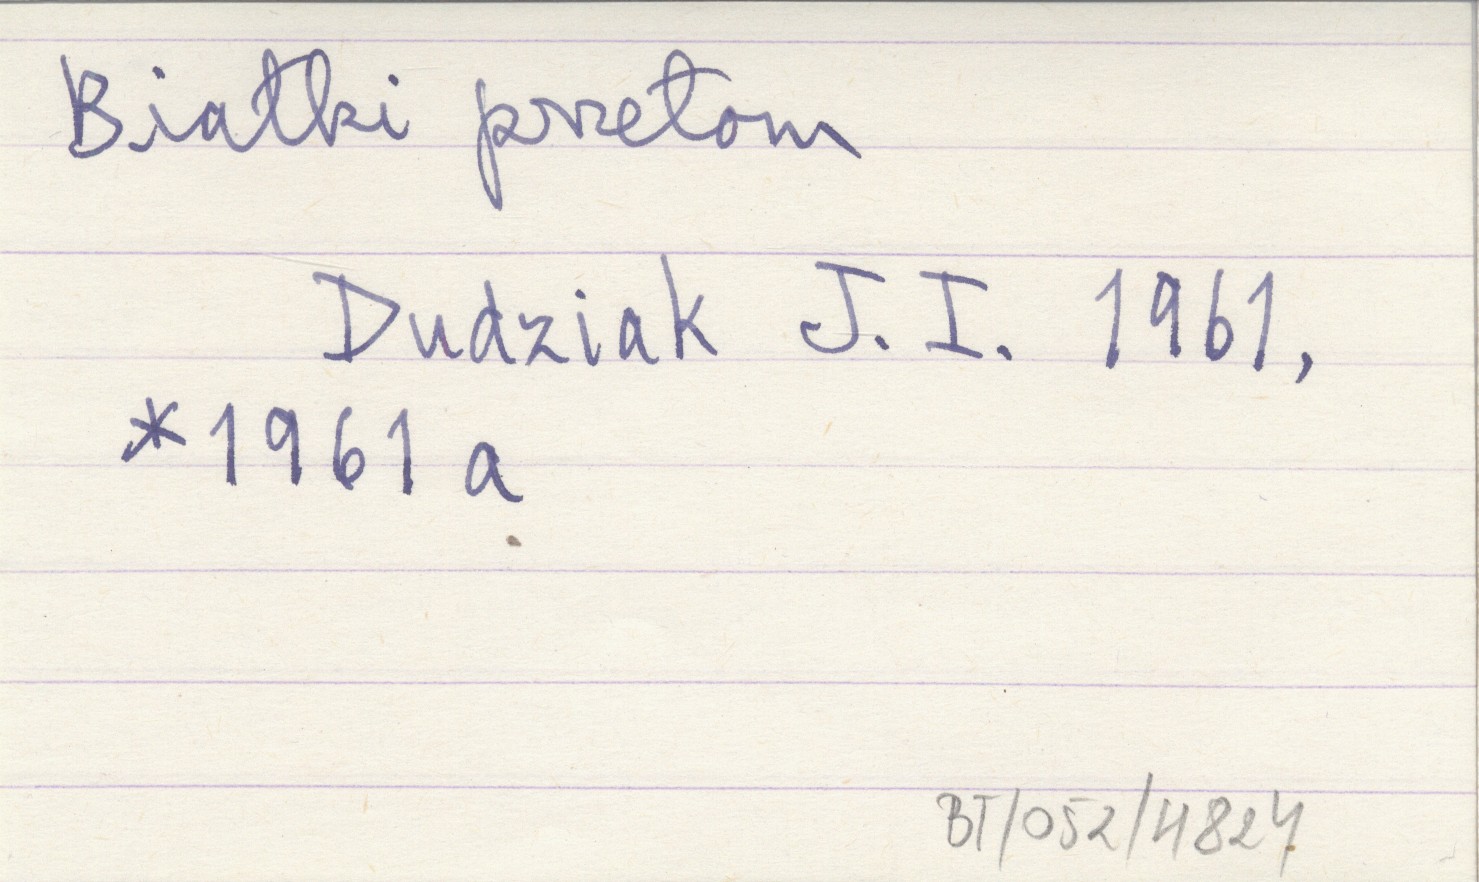 Białki przełom
Dudziak J. I. 1961,
*1961 a
BT/052/4824